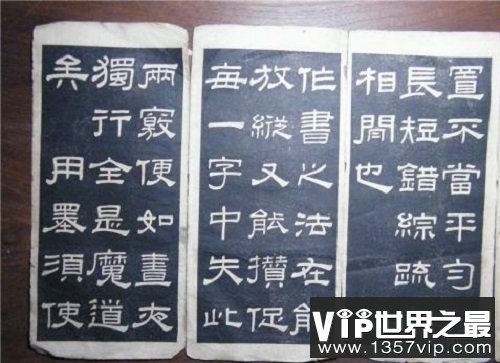 置不當平勻
長短錯綜疏
相間也
作書之法在能
放縱又能攢促
每一字中失此
兩竅便如晝夜
獨行全是魔道
矣 用墨須使
VIP世界之最
www.1357vip.com